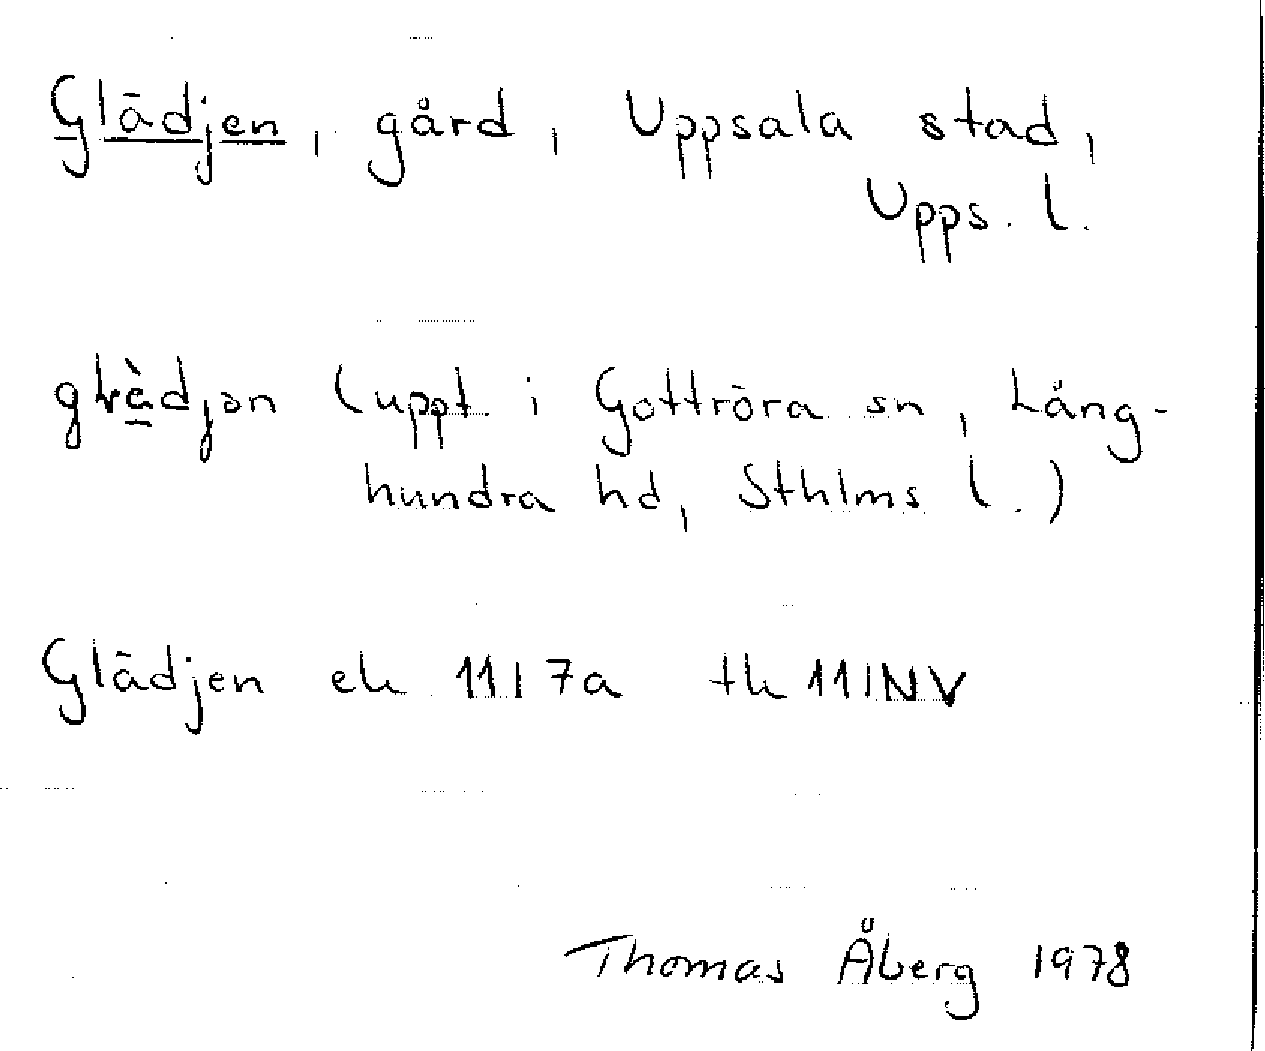 Glädjen, gård, Uppsala stad,
Upps. l.
glädjən (uppt. i Gottröra sn, Lång-
hundra hd, Sthlms l.)
Glädjen ek 11I7a tk 11INV
Thomas Åberg 1978